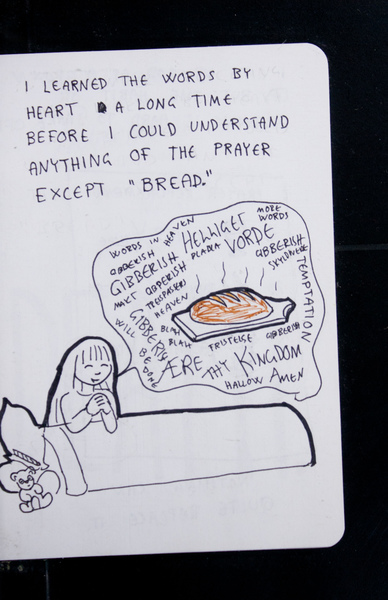 I LEARNED THE WORDS BY
HEART A LONG TIME
BEFORE I COULD UNDERSTAND
ANYTHING OF THE PRAYER
EXCEPT "BREAD."
WORDS IN HEAVEN
HELLIGET
MORE
WORDS
GIBBERISH
BLABLA
VORDE
GIBBERISH
GIBBERISH
SKYLDNERE
MAKT
GIBBERISH
TRESPASSES
HEAVEN
TEMPTATION
GIBBERISH
WILL BE DONE
BLAH
BLAH
FRISTELSE
GIBBERISH
ÆRE
THY KINGDOM
HALLOW AMEN